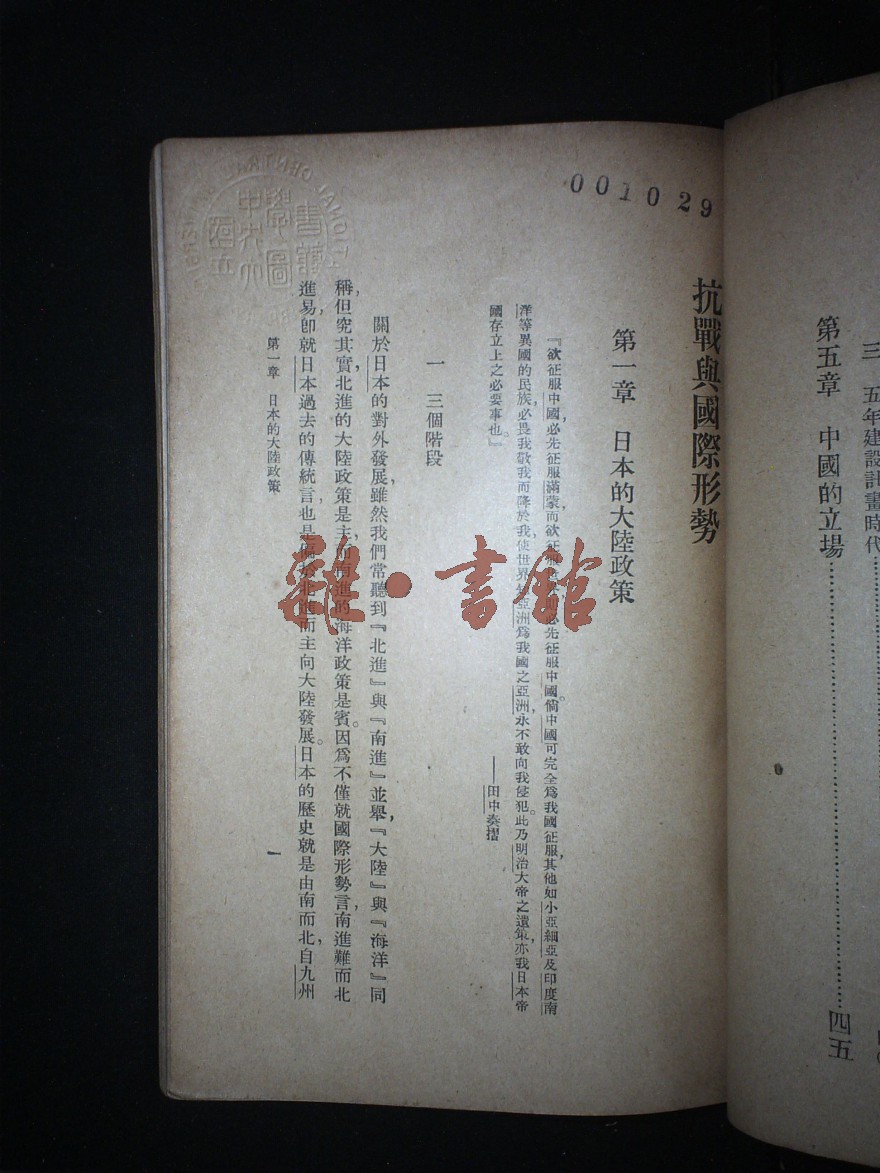 三　五年建設計畫時代
第五章　中國的立場……………………四五
001029
抗戰與國際形勢
第一章　日本的大陸政策
『欲征服中國，必先征服滿蒙，而欲征服必先征服中國。倘中國可完全爲我國征服，其他如小亞細亞及印度南
洋等異國的民族，必畏我敬我而降於我，使世界知亞洲爲我國之亞洲，永不敢向我侵犯。此乃明治大帝之遺策，亦我日本帝
國存立上之必要事也。』
——田中奏摺
一　三個階段
關於日本的對外發展，雖然我們常聽到『北進』與『南進』並舉，『大陸』與『海洋』同
稱，但究其實，北進的大陸政策是主，而南進的海洋政策是賓。因爲不僅就國際形勢言，南進難而北
進易，卽就日本過去的傳統言，也是偏於北進而主向大陸發展。日本的歷史就是由南而北，自九州
第一章　日本的大陸政策
一
雜·書館
國立中央大學圖書館